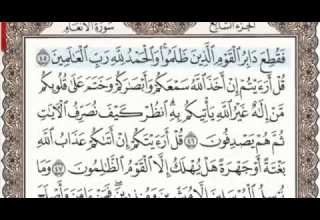 الجزء السابع سورة الأنعام
فَقُطِعَ دَابِرُ الْقَوْمِ الَّذِينَ ظَلَمُوا وَالْحَمْدُ لِلَّهِ رَبِّ الْعَالَمِينَ ٤٥
قُلْ أَرَءَيْتُمْ إِنْ أَخَذَ اللَّهُ سَمْعَكُمْ وَأَبْصَارَكُمْ وَخَتَمَ عَلَى قُلُوبِكُم
مَّنْ إِلَهٌ غَيْرُ اللَّهِ يَأْتِيكُم بِهِ انظُرْ كَيْفَ نُصَرِّفُ الْآيَاتِ
ثُمَّ هُمْ يَصْدِفُونَ ٤٦ قُلْ أَرَءَيْتَكُمْ إِنْ أَتَاكُمْ عَذَابُ اللَّهِ
بَغْتَةً أَوْ جَهْرَةً هَلْ يُهْلَكُ إِلَّا الْقَوْمُ الظَّالِمُونَ ٤٧ وَمَا